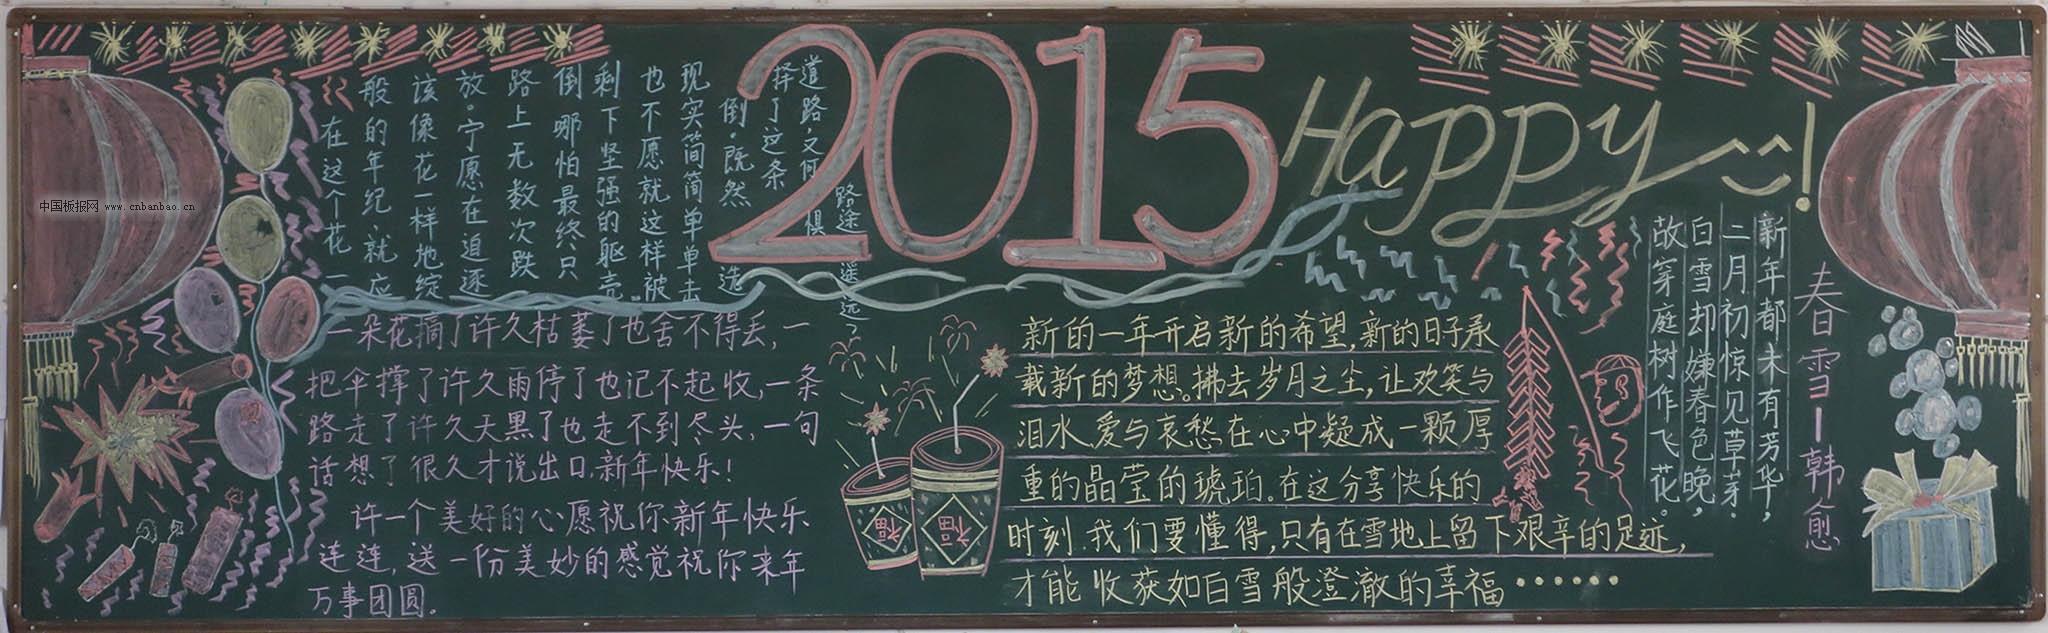 2015
Happy!
道路,又何惧
路途遥远?
择了这条
倒。既然选
现实简简单单击
也不愿就这样被
剩下坚强的躯壳
倒哪怕最终只
路上无数次跌
放。宁愿在追逐
该像花一样地绽
般的年纪,就应
在这个花一
中国板报网 www.cnbanbao.cn
一朵花搞了许久枯萎了也舍不得丢,一
把伞撑了许久雨停了也记不起收,一条
路走了许久天黑了也走不到尽头,一句
话想了很久才说出口.新年快乐!
许一个美好的心愿祝你新年快乐
连连,送一份美妙的感觉祝你来年
万事团圆。
福
福
新的一年开启新的希望,新的日子承
载新的梦想。拂去岁月之尘,让欢笑与
泪水、爱与哀愁在心中凝成一颗厚
重的晶莹的琥珀。在这分享快乐的
时刻.我们要懂得,只有在雪地上留下艰辛的足迹,
才能收获如白雪般澄澈的幸福······
春雪—韩愈
新年都未有芳华,
二月初惊见草芽.
白雪却嫌春色晚,
故穿庭树作飞花。